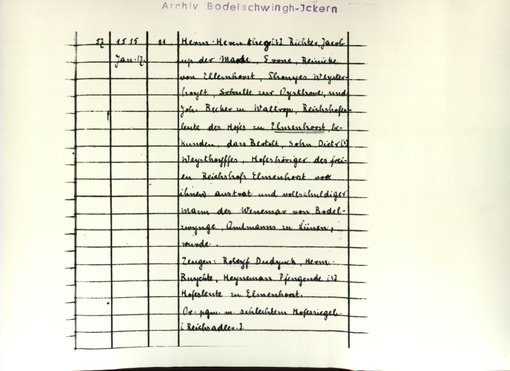 Archiv Bodelschwingh-Ickern
57 1515 81 Herm. Richter, Jacob
Jan. 17. up der Mande, Evone, Reinicke
von Ellernhorst, Weyster-
Schulte zur und
Joh. Becker zu Waltrop, Reichshofes-
leute des Hofes zu Elmenhorst be-
kunden, dass Bertolt, Sohn Dietr[?]
Weysthoyffes, Hofeshöriger des frei-
en Reichshofs Elmenhorst von
ihnen austrat und vollschuldiger
Mann des Wenemar von Bodel-
zwynge Amtmanns zu Lünen,
wurde.
Zeugen: Roloyf Dudynck, Herm.
Buychte, Heyneman Pfengende [?]
Hofesleute zu Elmenhorst.
Or. pgm. m. schlechtem Hofessiegel
[Reichsadler].